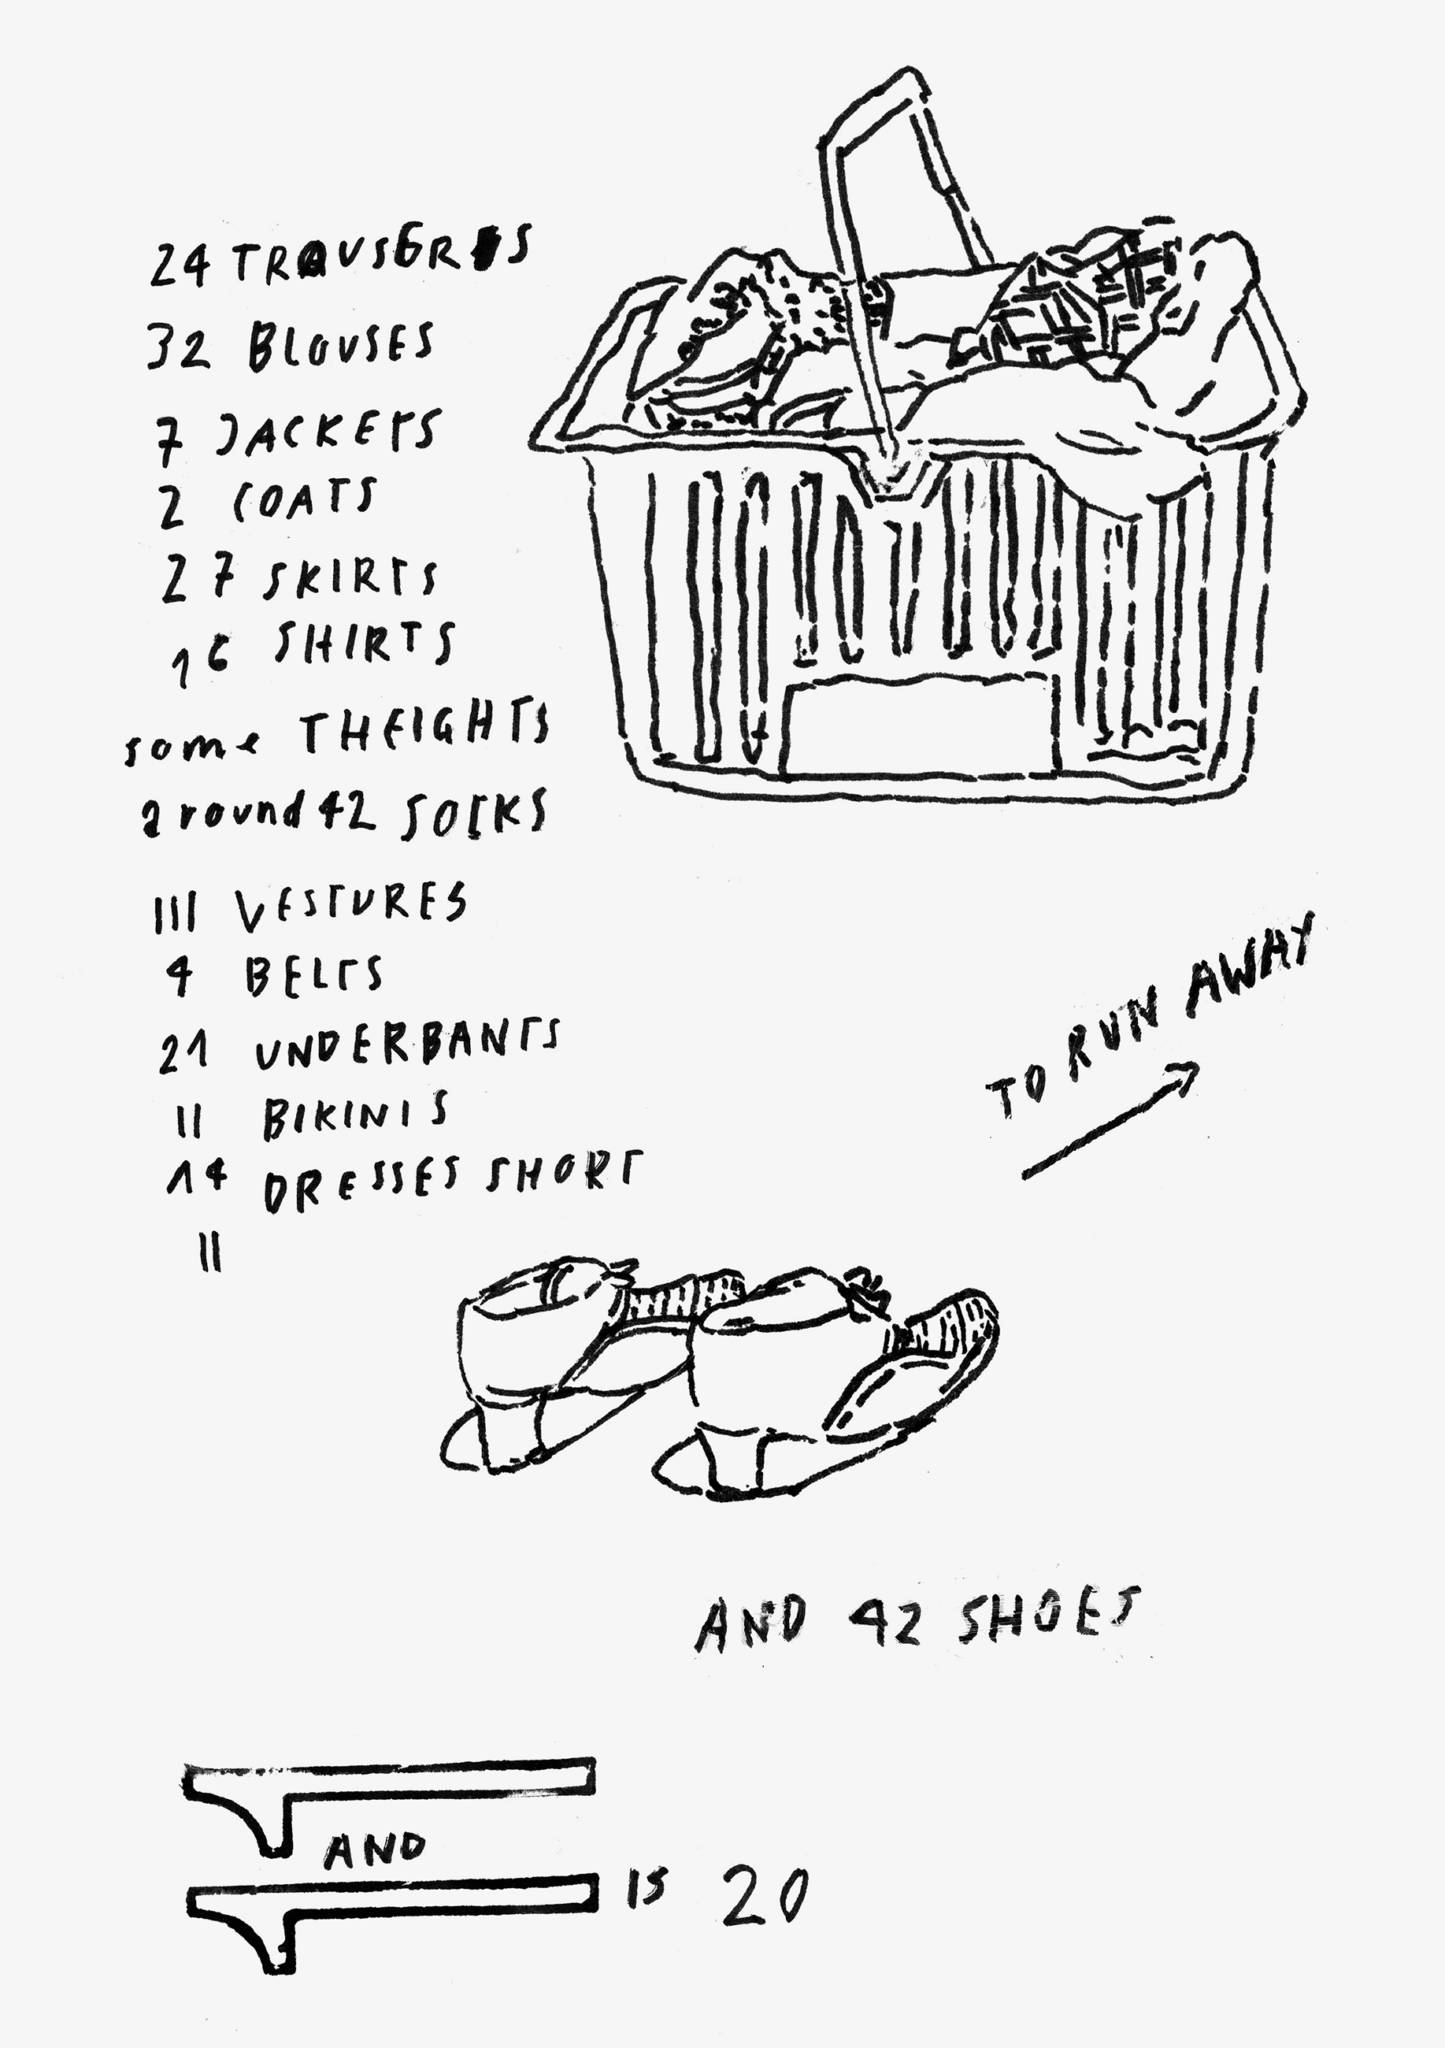 24 TROUSERS
32 BLOUSES
7 JACKETS
2 COATS
27 SKIRTS
16 SHIRTS
some THEIGHTS
around 42 SOCKS
III VESTURES
4 BELTS
21 UNDERBANTS
II BIKINIS
14 DRESSES SHORT
II
TO RUN AWAY
AND 42 SHOES
AND
IS 20